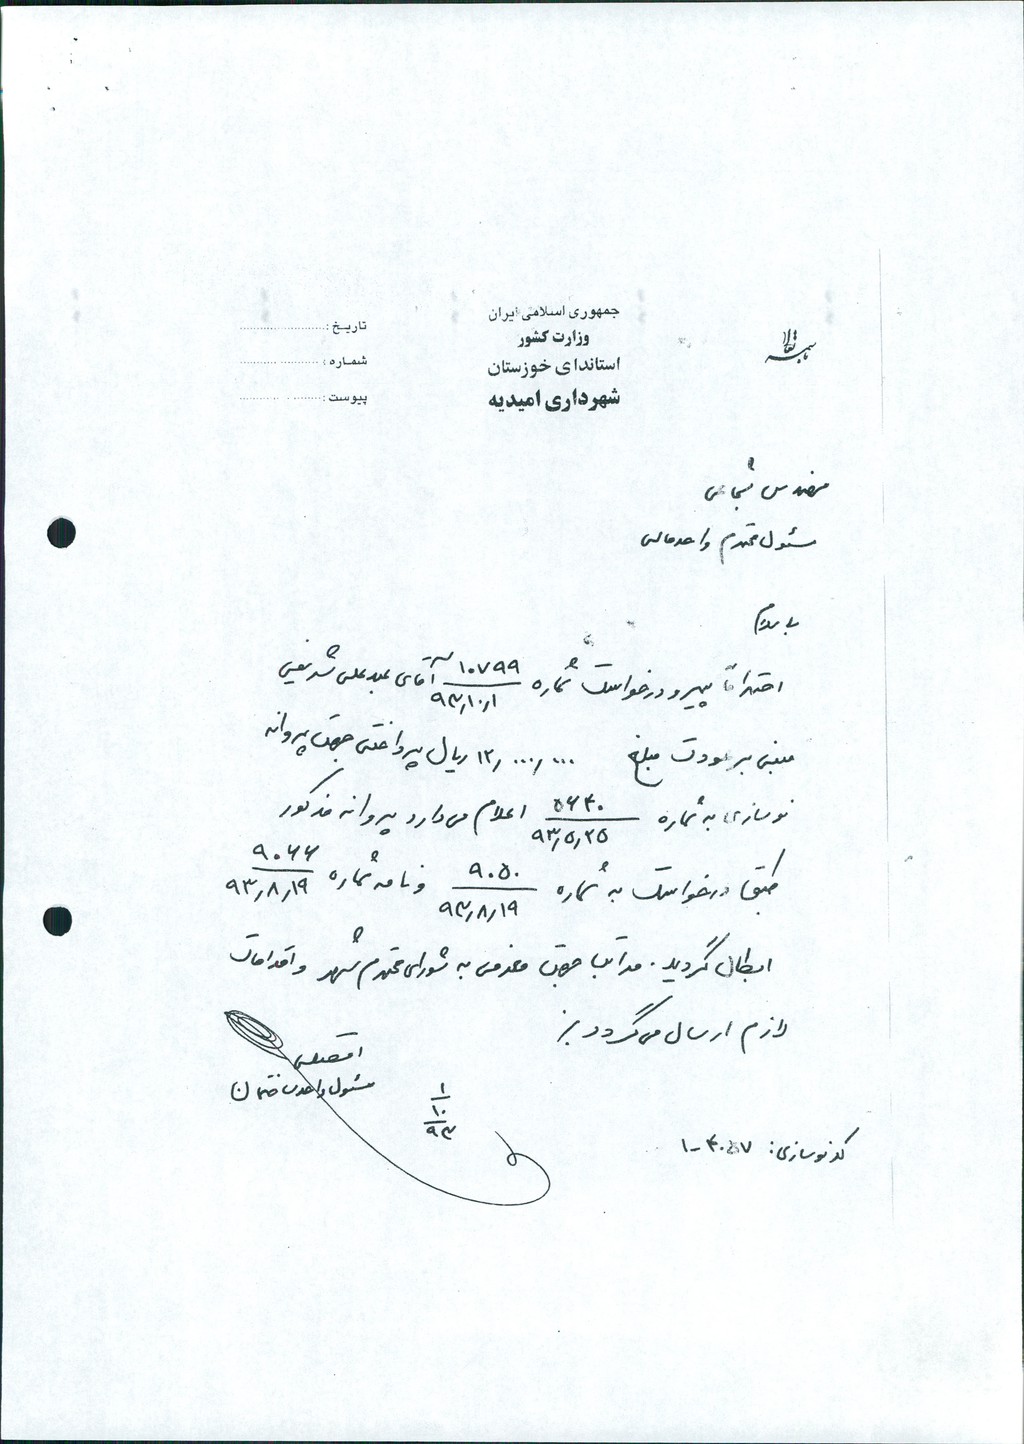 باسمه تعالی
جمهوری اسلامی ایران
وزارت کشور
استانداری خوزستان
شهرداری امیدیه
تاریخ :
شماره :
پیوست :
مهندس شجاعی
مسئول محترم واحد مالی
با سلام
احتراماً پیرو درخواست شماره ۱۰۷۹۹ ۹۳/۱۰/۱ آقای عبدعلی شریفی
مبنی بر عودت مبلغ ۱۲/۰۰۰/۰۰۰ ریال پرداختی جهت پروانه
نوسازی به شماره ۵۶۴۰ ۹۳/۵/۲۵ اعلام می دارد پروانه مذکور
طبق درخواست به شماره ۹۰۵۰ ۹۳/۸/۱۹ و نامه شماره ۹۰۶۶ ۹۳/۸/۱۹
ابطال گردید. مراتب جهت معرفی به شورای محترم شهر و اقدامات
لازم ارسال می گردد
مسئول واحد ساختمان
۱/۱۰/۹۳
کد نوسازی: ۱-۴۰۵۷